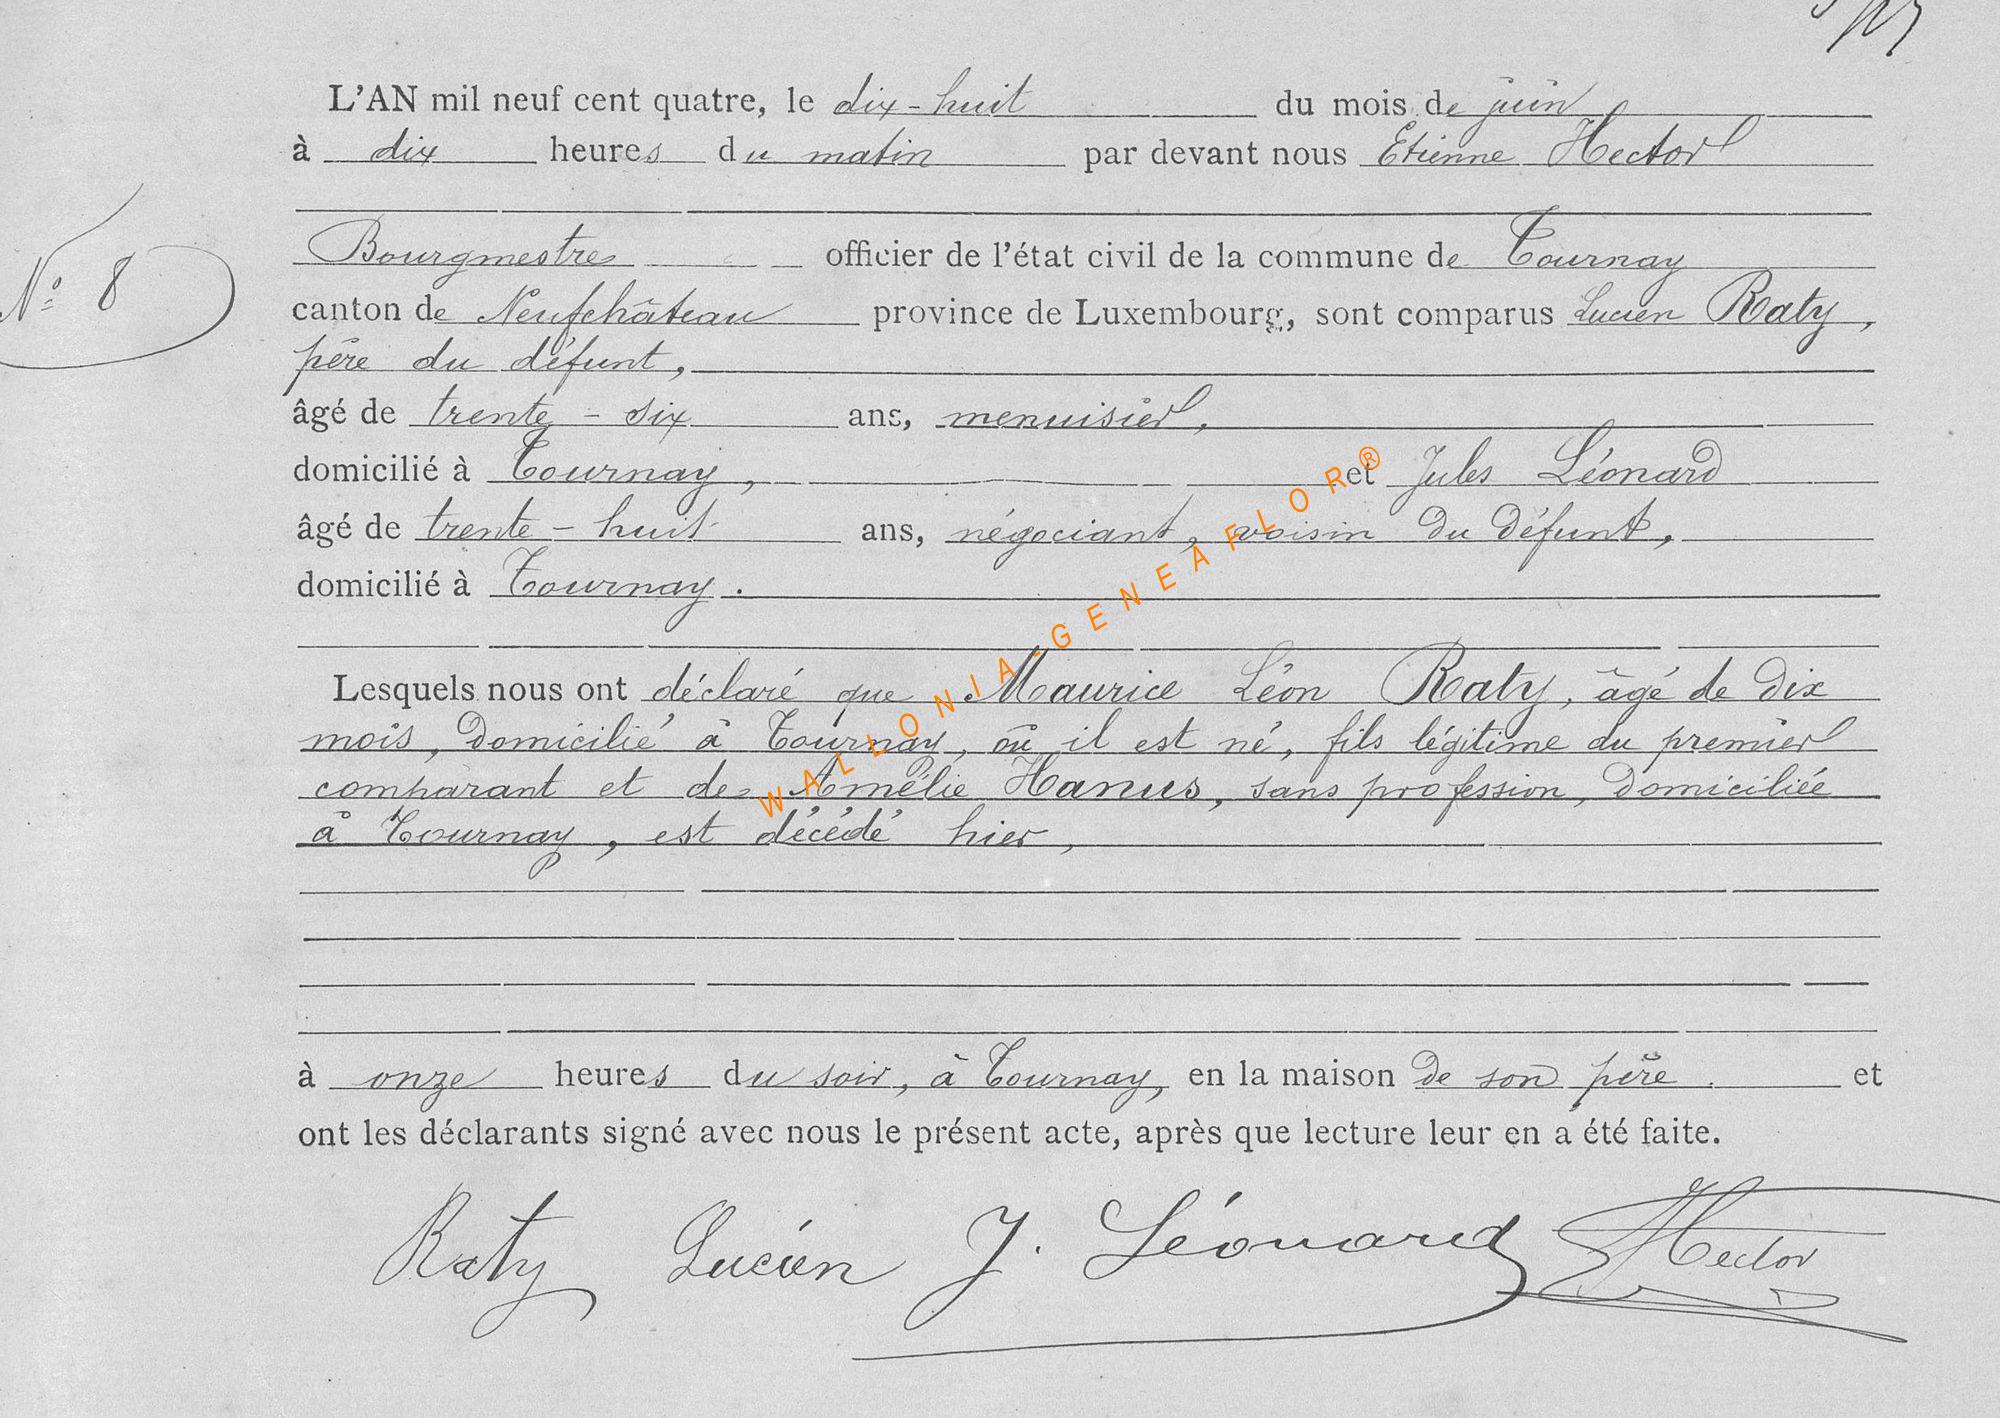 L'AN mil neuf cent quatre, le dix-huit du mois de juin
à dix heures du matin par devant nous Etienne Hector
Bourgmestre officier de l'état civil de la commune de Tournay
N° 8
canton de Neufchâteau province de Luxembourg, sont comparus Lucien Raty,
père du défunt,
âgé de trente-six ans, menuisier,
domicilié à Tournay, et Jules Léonard
âgé de trente-huit ans, négociant, voisin du défunt,
domicilié à Tournay.
WALLONIA-GENEAFLOR®
Lesquels nous ont déclaré que Maurice Léon Raty, âgé de dix
mois, domicilié à Tournay, où il est né, fils légitime du premier
comparant et de Amélie Hanus, sans profession, domiciliée
à Tournay, est décédé hier,
à onze heures du soir, à Tournay, en la maison de son père. et
ont les déclarants signé avec nous le présent acte, après que lecture leur en a été faite.
Raty Lucien J. Léonard Hector